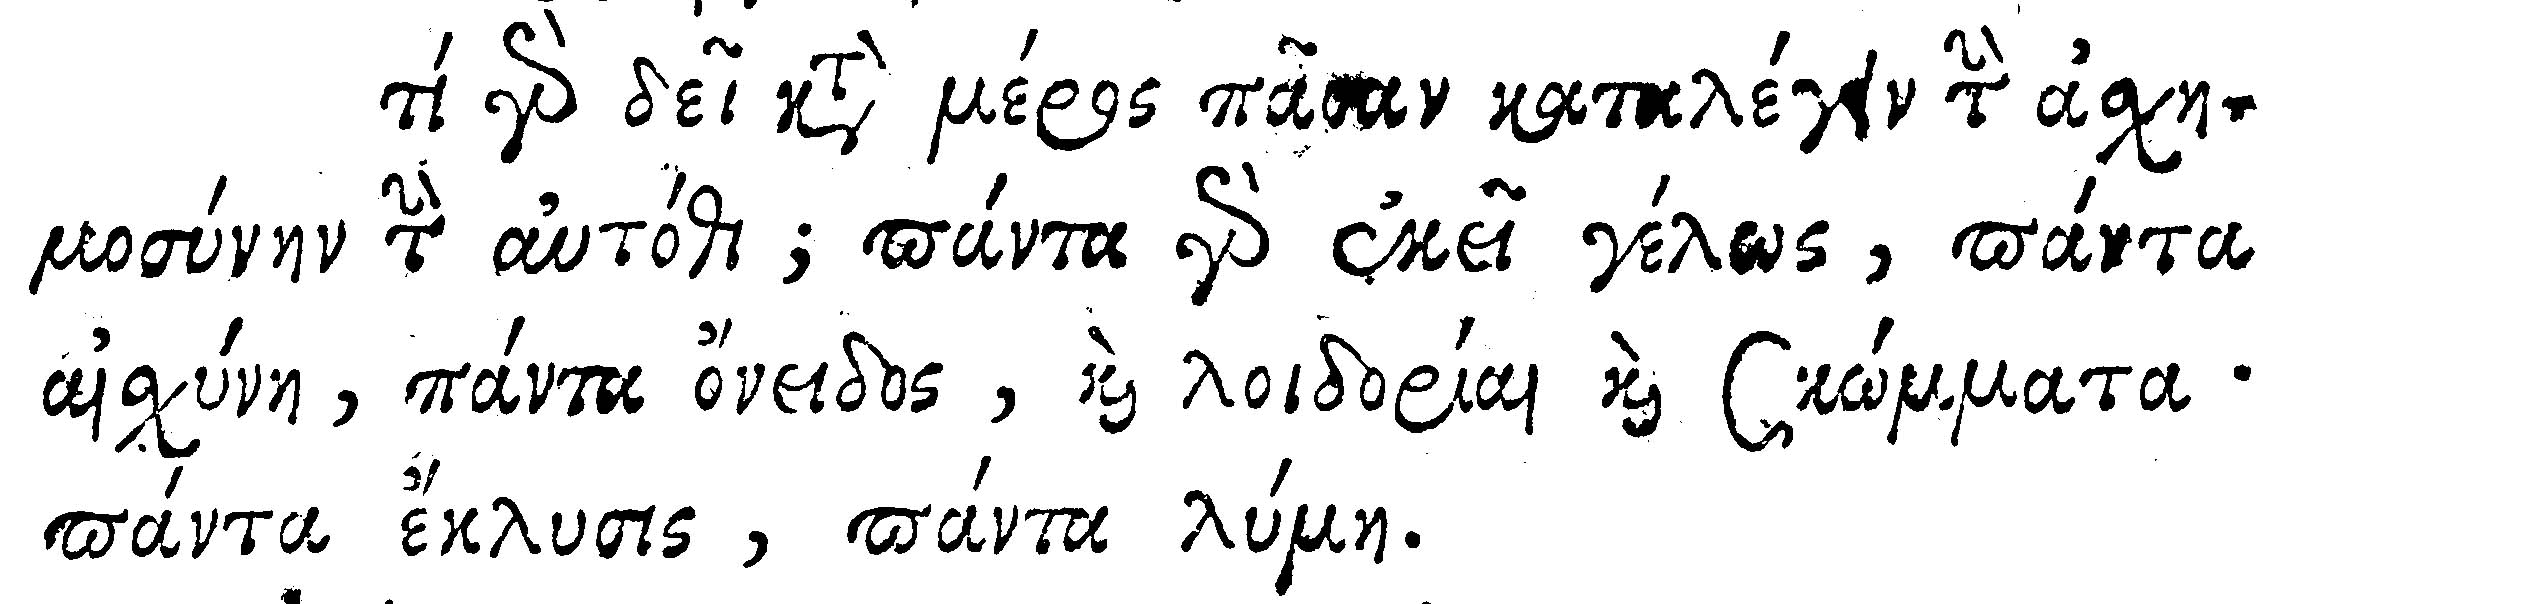 τί γὰρ δεῖ κατὰ μέρος πᾶσαν καταλέγειν τὴν ἀσχη-
μοσύνην τὴν αὐτόθι; πάντα γὰρ ἐκεῖ γέλως, πάντα
αἰσχύνη, πάντα ὄνειδος, καὶ λοιδορίαι καὶ σκώμματα·
πάντα ἔκλυσις, πάντα λύμη.